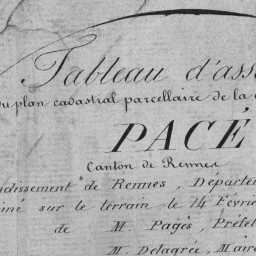 Tableau d'ass
du plan cadastral parcellaire de la
PACÉ
Canton de Rennes
ndissement de Rennes, Départem
iné sur le terrain le 14 Févrie
de M. Pagès, Préfet
M. Delagrée, Maire